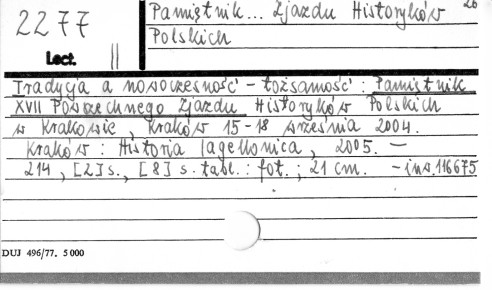 2277
Lect. ||
Pamiętnik... Zjazdu Historyków 20
Polskich
Tradycja a nowoczesność - tożsamość : Pamiętnik
XVII Powszechnego Zjazdu Historyków Polskich
w Krakowie, Kraków 15-18 września 2004.
Kraków : Historia Iagellonica, 2005. -
214, [2] s., [8] s. tabl. : fot. ; 21 cm. - inw. 116675
DUJ 496/77. 5 000